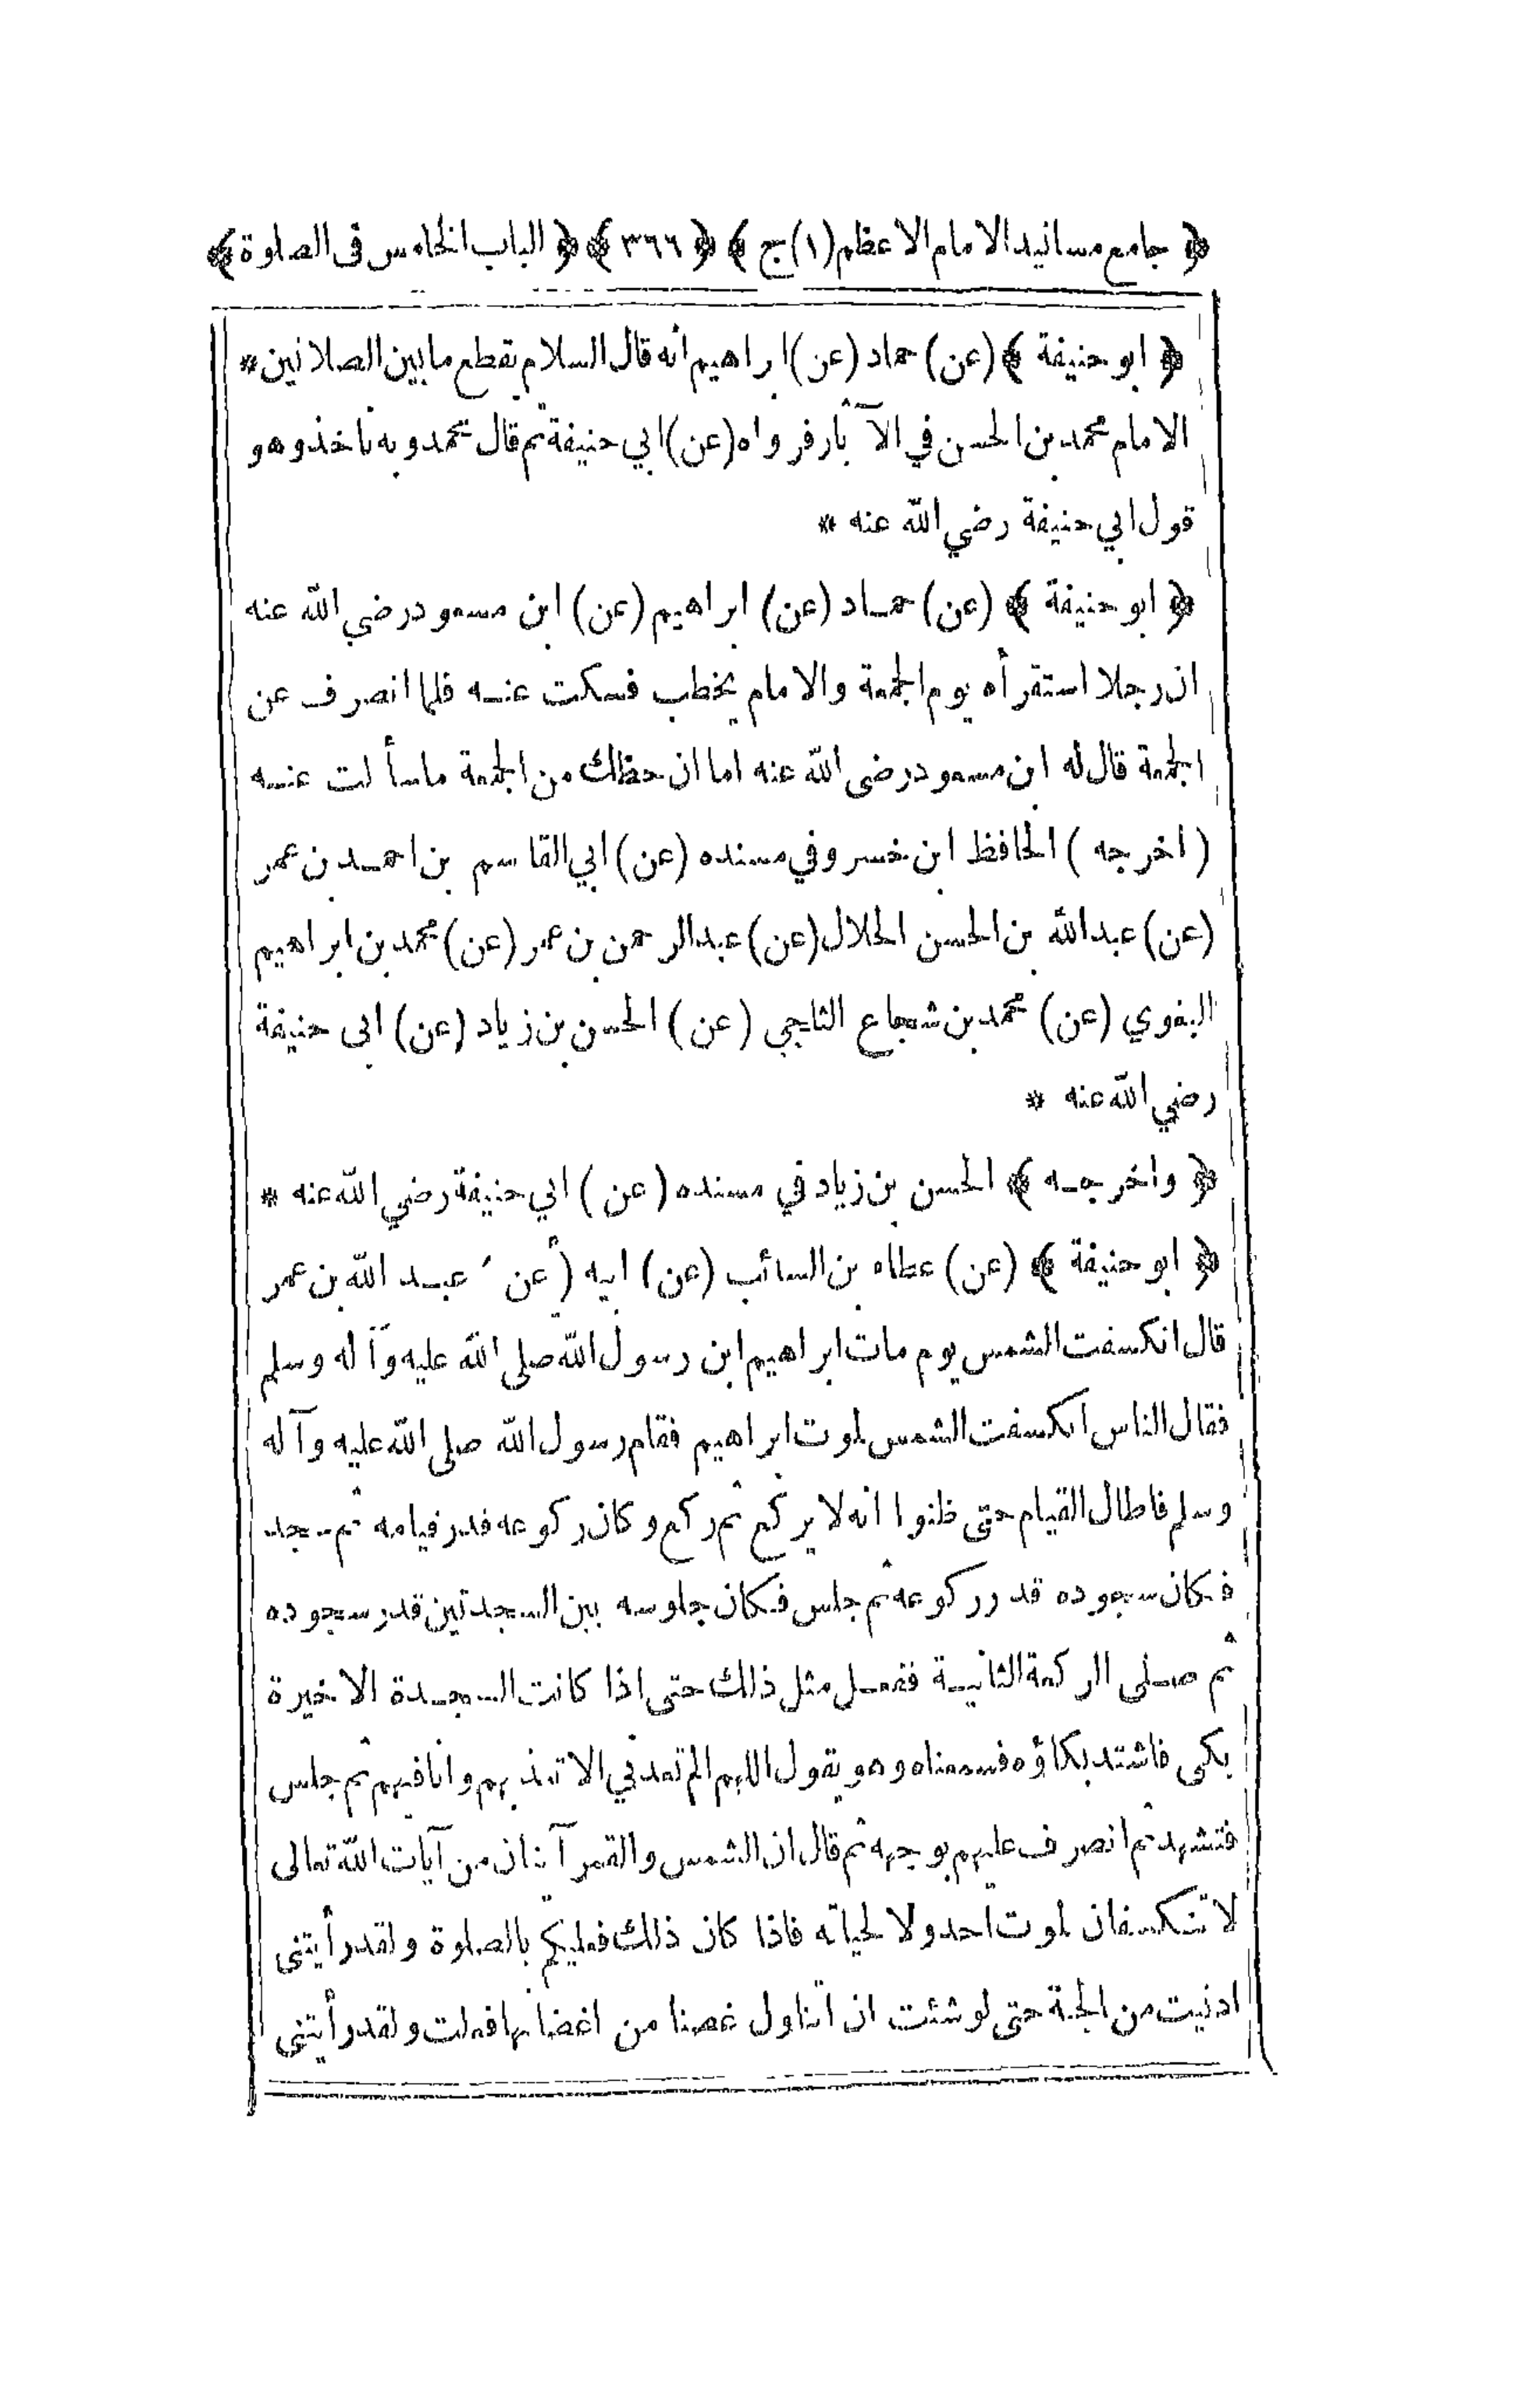 ﴿ جامع مسانيد الامام الاعظم (١) ج ﴾ ﴿ ٣٦٦ ﴾ ﴿ الباب الخامس فى الصلوة ﴾
﴿ ابو حنيفة ﴾ (عن) حماد (عن) ابراهيم انه قال السلام يقطع ما بين الصلاتين *
الامام محمد بن الحسن في الآثار فرواه (عن) ابي حنيفة ثم قال محمد وبه ناخذ وهو
قول ابي حنيفة رضي الله عنه *
﴿ ابو حنيفة ﴾ (عن) حماد (عن) ابراهيم (عن) ابن مسعود رضي الله عنه
ان رجلا استقرأه يوم الجمعة والامام يخطب فسكت عنه فلما انصرف عن
الجمعة قال له ابن مسعود رضى الله عنه اما ان حظك من الجمعة ما سألت عنه
(اخرجه) الحافظ ابن خسرو في مسنده (عن) ابي القاسم بن احمد بن عمر
(عن) عبدالله بن الحسن الخلال (عن) عبدالرحمن بن عمر (عن) محمد بن ابراهيم
البغوي (عن) محمد بن شجاع الثلجي (عن) الحسن بن زياد (عن) ابى حنيفة
رضي الله عنه *
﴿ واخرجه ﴾ الحسن بن زياد في مسنده (عن) ابي حنيفة رضي الله عنه *
﴿ ابو حنيفة ﴾ (عن) عطاء بن السائب (عن) ابيه (عن) عبد الله بن عمر
قال انكسفت الشمس يوم مات ابراهيم ابن رسول الله صلى الله عليه وآله وسلم
فقال الناس انكسفت الشمس لموت ابراهيم فقام رسول الله صلى الله عليه وآله
وسلم فاطال القيام حتى ظنوا انه لا يركع ثم ركع وكان ركوعه قدر قيامه ثم سجد
فكان سجوده قدر ركوعه ثم جلس فكان جلوسه بين السجدتين قدر سجوده
ثم صلى الركعة الثانية ففعل مثل ذلك حتى اذا كانت السجدة الاخيرة
بكى فاشتد بكاؤه فسمعناه وهو يقول اللهم الم تعدني الا تعذبهم وانا فيهم ثم جلس
فتشهد ثم انصرف عليهم بوجهه ثم قال ان الشمس والقمر آيتان من آيات الله تعالى
لا تنكسفان لموت احد ولا لحياته فاذا كان ذلك فعليكم بالصلوة ولقد رأيتنى
ادنيت من الجنة حتى لو شئت ان اتناول غصنا من اغصانها فعلت ولقد رأيتنى